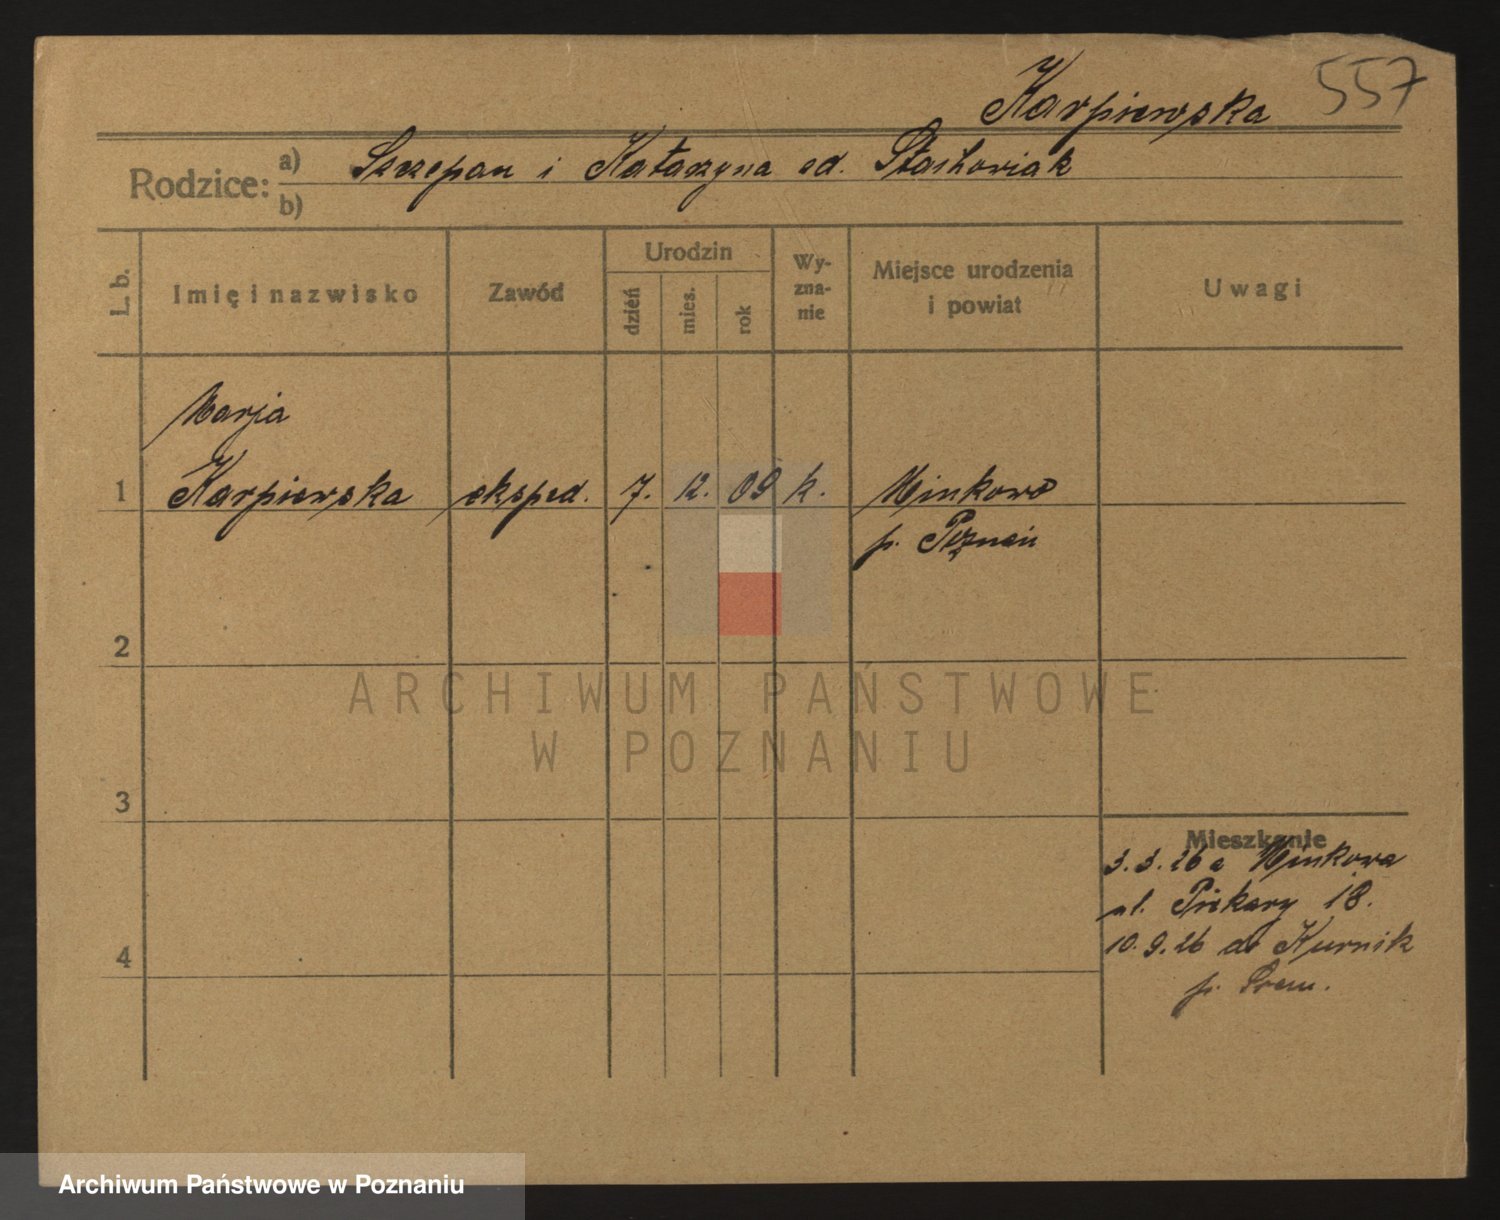 Karpiewska 557
Rodzice: a) Szczepan i Katarzyna od. Stachowiak
b)
L. b. Imię i nazwisko Zawód Urodzin dzień mies. rok Wy-zna-nie Miejsce urodzenia i powiat Uwagi
Marja
1 Karpiewska eksped. 7. 12. 09 k. Minkowo
p. Poznań
2
ARCHIWUM PAŃSTWOWE
W POZNANIU
3
Mieszkanie
3.3.26 a Minkowa
ul. Piekary 18.
4 10.9.26 do Kurnik
p. Śrem.
Archiwum Państwowe w Poznaniu